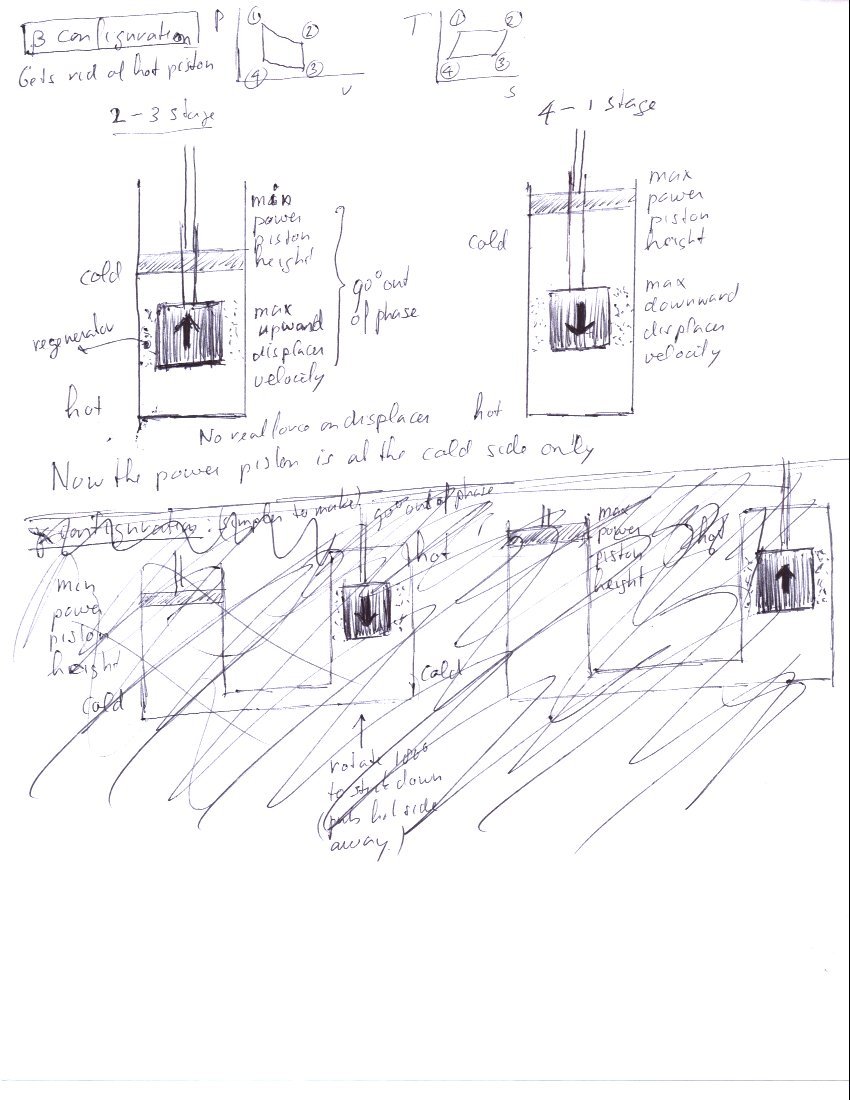 β Configuration
Gets rid of hot piston
P
①
②
③
④
v
T
①
②
③
④
s
2-3 stage
min
power
piston
height
cold
regenerator
max
upward
displacer
velocity
90° out
of phase
hot
4-1 stage
max
power
piston
height
cold
max
downward
displacer
velocity
hot
No real force on displacer
Now the power piston is at the cold side only
γ Configuration: (simpler to make)
90° out of phase
min
power
piston
height
cold
hot
cold
max
power
piston
height
hot
rotate 180°
to shut down
(puts hot side
away)